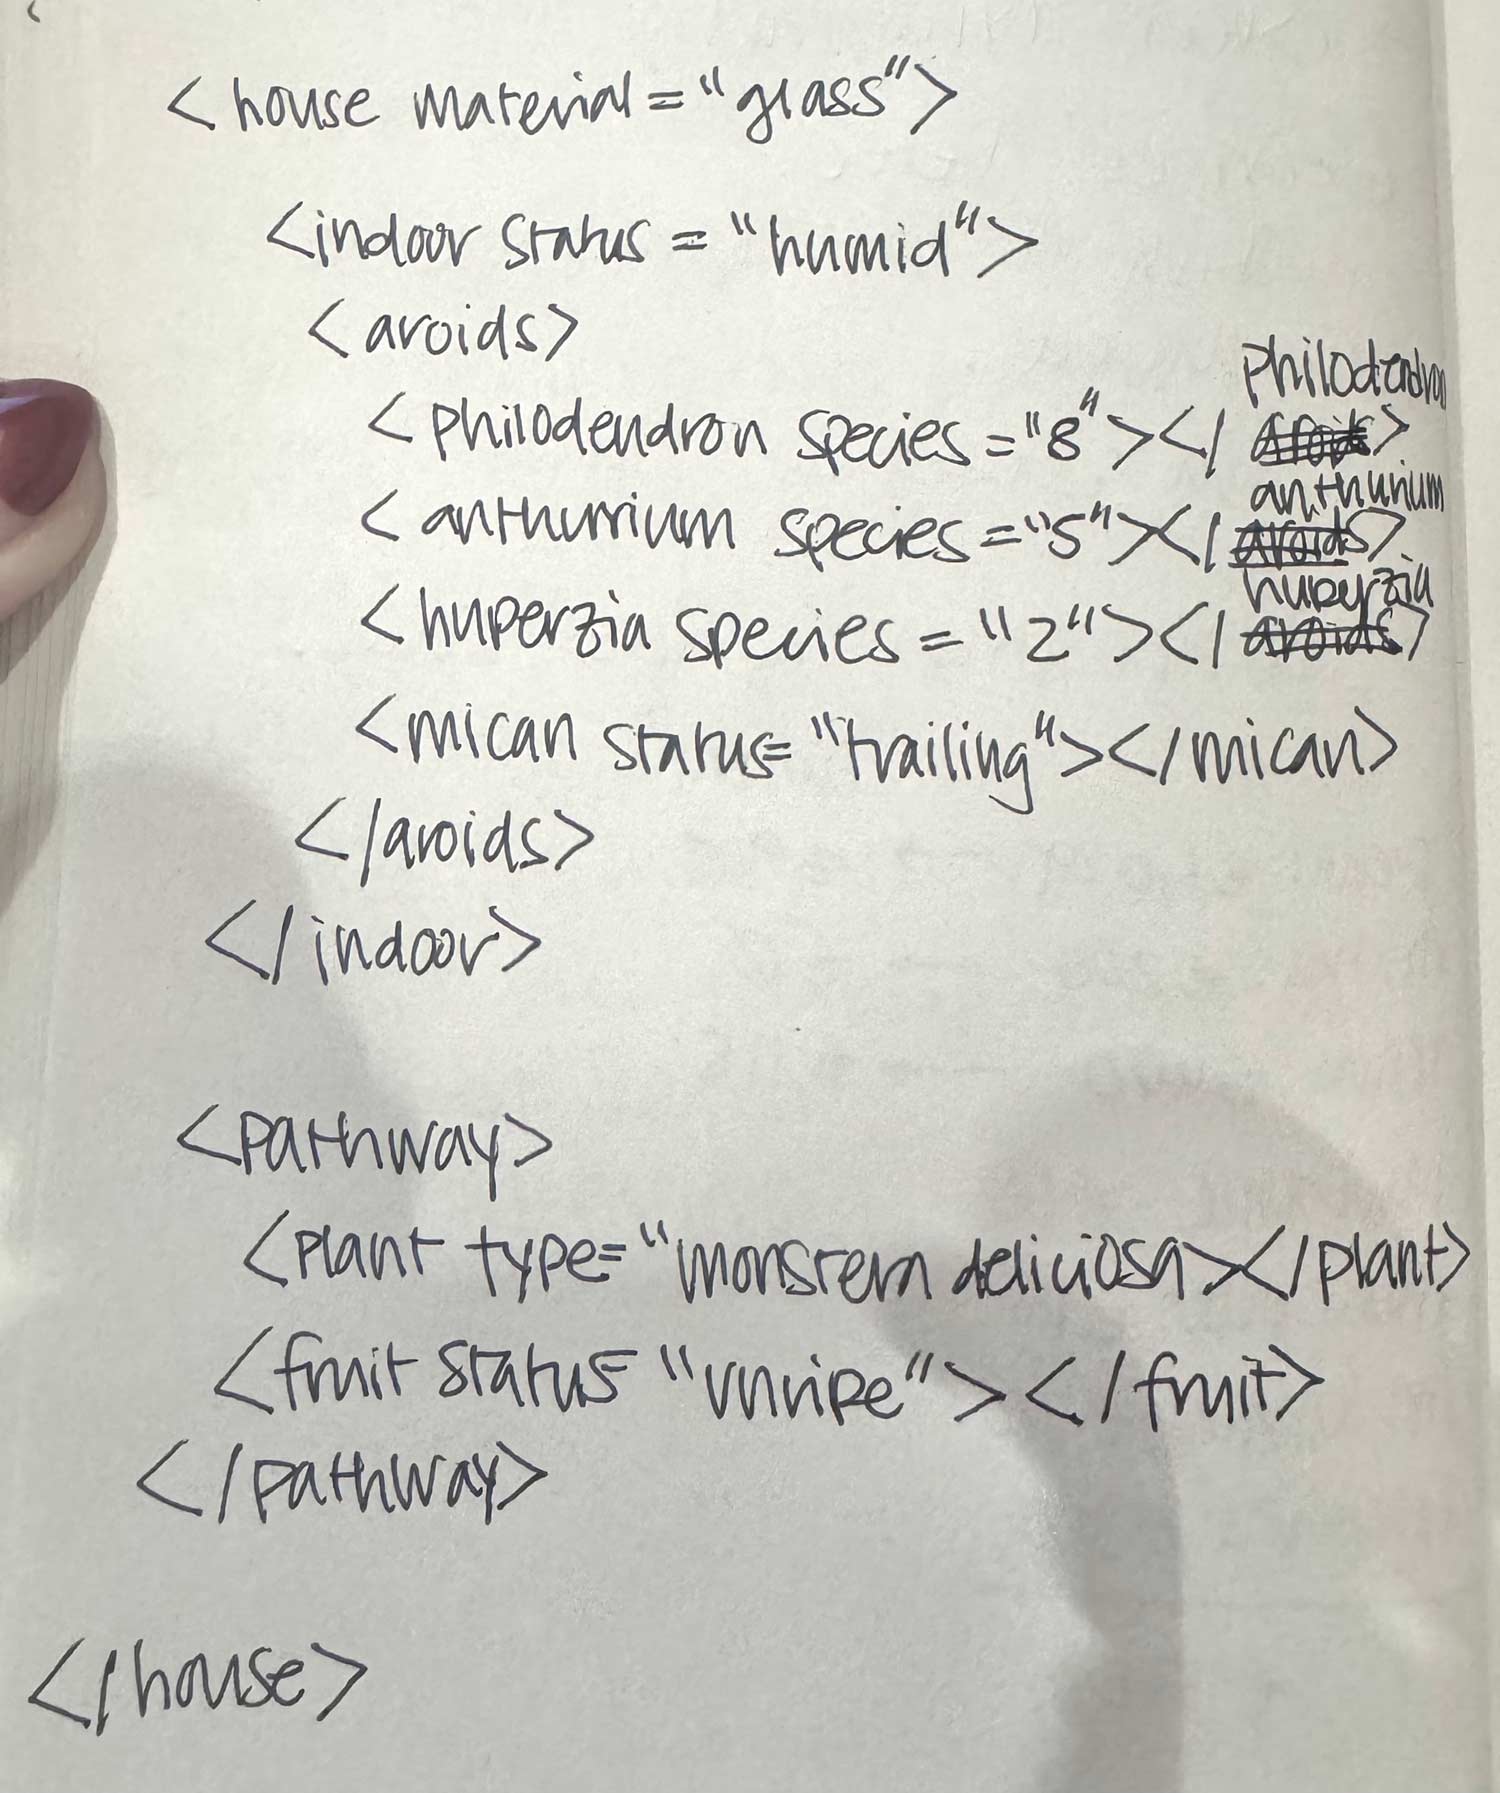 <house material="glass">
<indoor status="humid">
<aroids>
<philodendron species="8"></philodendron>
<anthurium species="5"></anthurium>
<huperzia species="2"></huperzia>
<mican status="trailing"></mican>
</aroids>
</indoor>
<pathway>
<plant type="monstera deliciosa></plant>
<fruit status="unripe"></fruit>
</pathway>
</house>